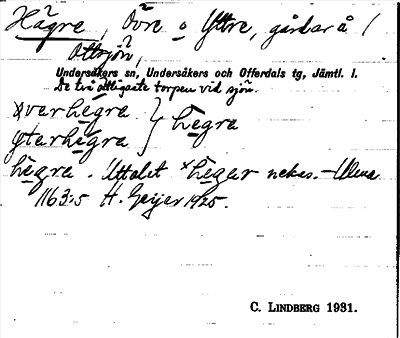 Hägre, Övre o Yttre, gårdar å /
Ottsjön,
Undersåkers sn, Undersåkers och Offerdals tg, Jämtl. l.
De två östligaste torpen vid sjön.
överhegra } hegra
yterhegra
hegra. Uttalet *hegar nekas. –
1163:5 H. Geijer 1925.
C. LINDBERG 1931.